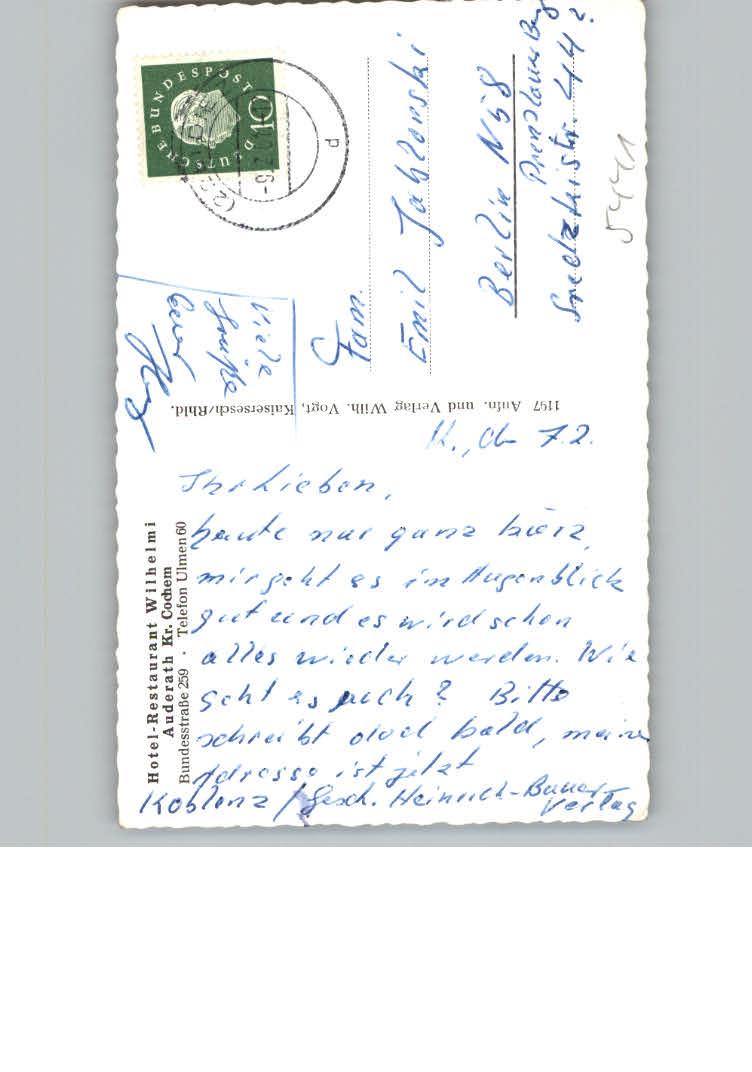 Hotel-Restaurant Wilhelmi
Auderath Kr. Cochem
Bundesstraße 259 · Telefon Ulmen 60
K., den 7.2.
Ihr Lieben,
heute nur ganz kurz,
mir geht es im Augenblick
gut und es wird schon
alles wieder werden. Wie
geht es euch? Bitte
schreibt doch bald, meine
Adresse ist jetzt
Koblenz / Gesch. Heinrich-Bauer-
Verlag
Viele
Grüße
Euer
1197 Aufn. und Verlag Wilh. Vogt, Kaisersesch/Rhld.
DEUTSCHE BUNDESPOST
10
Fam.
Emil Jablonski
Berlin N58
Prenzlauer Berg
Sredzkistr. 44
5441